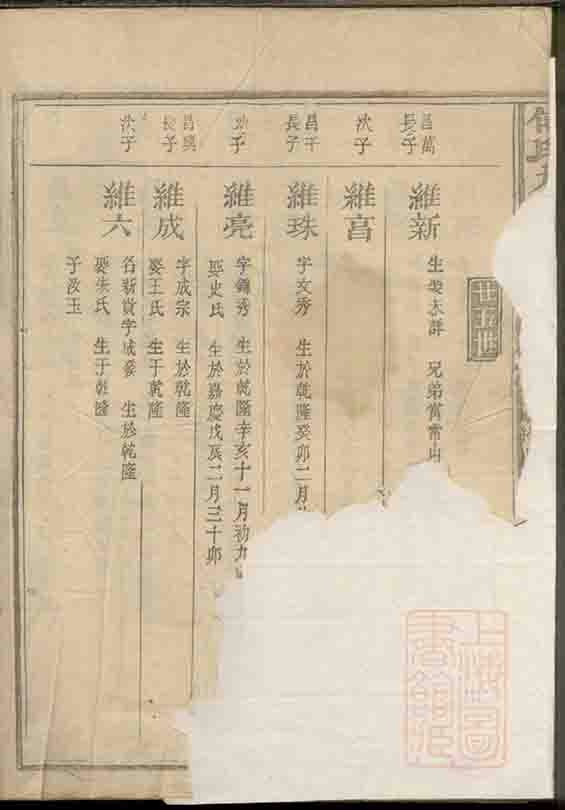 世五世
昌萬
長子
維新
生娶未詳 兄弟
次子
維富
昌平
長子
維珠
字文秀 生於乾隆癸卯二月
次子
維亮
字錦秀 生於乾隆辛亥十一月初九
娶史氏 生於嘉慶戊辰二月三十卯
昌興
長子
維成
字成宗 生於乾隆
娶王氏 生于乾隆
次子
維六
名新貴字成發 生於乾隆
娶朱氏 生于乾隆
子汝玉
上海圖書館藏